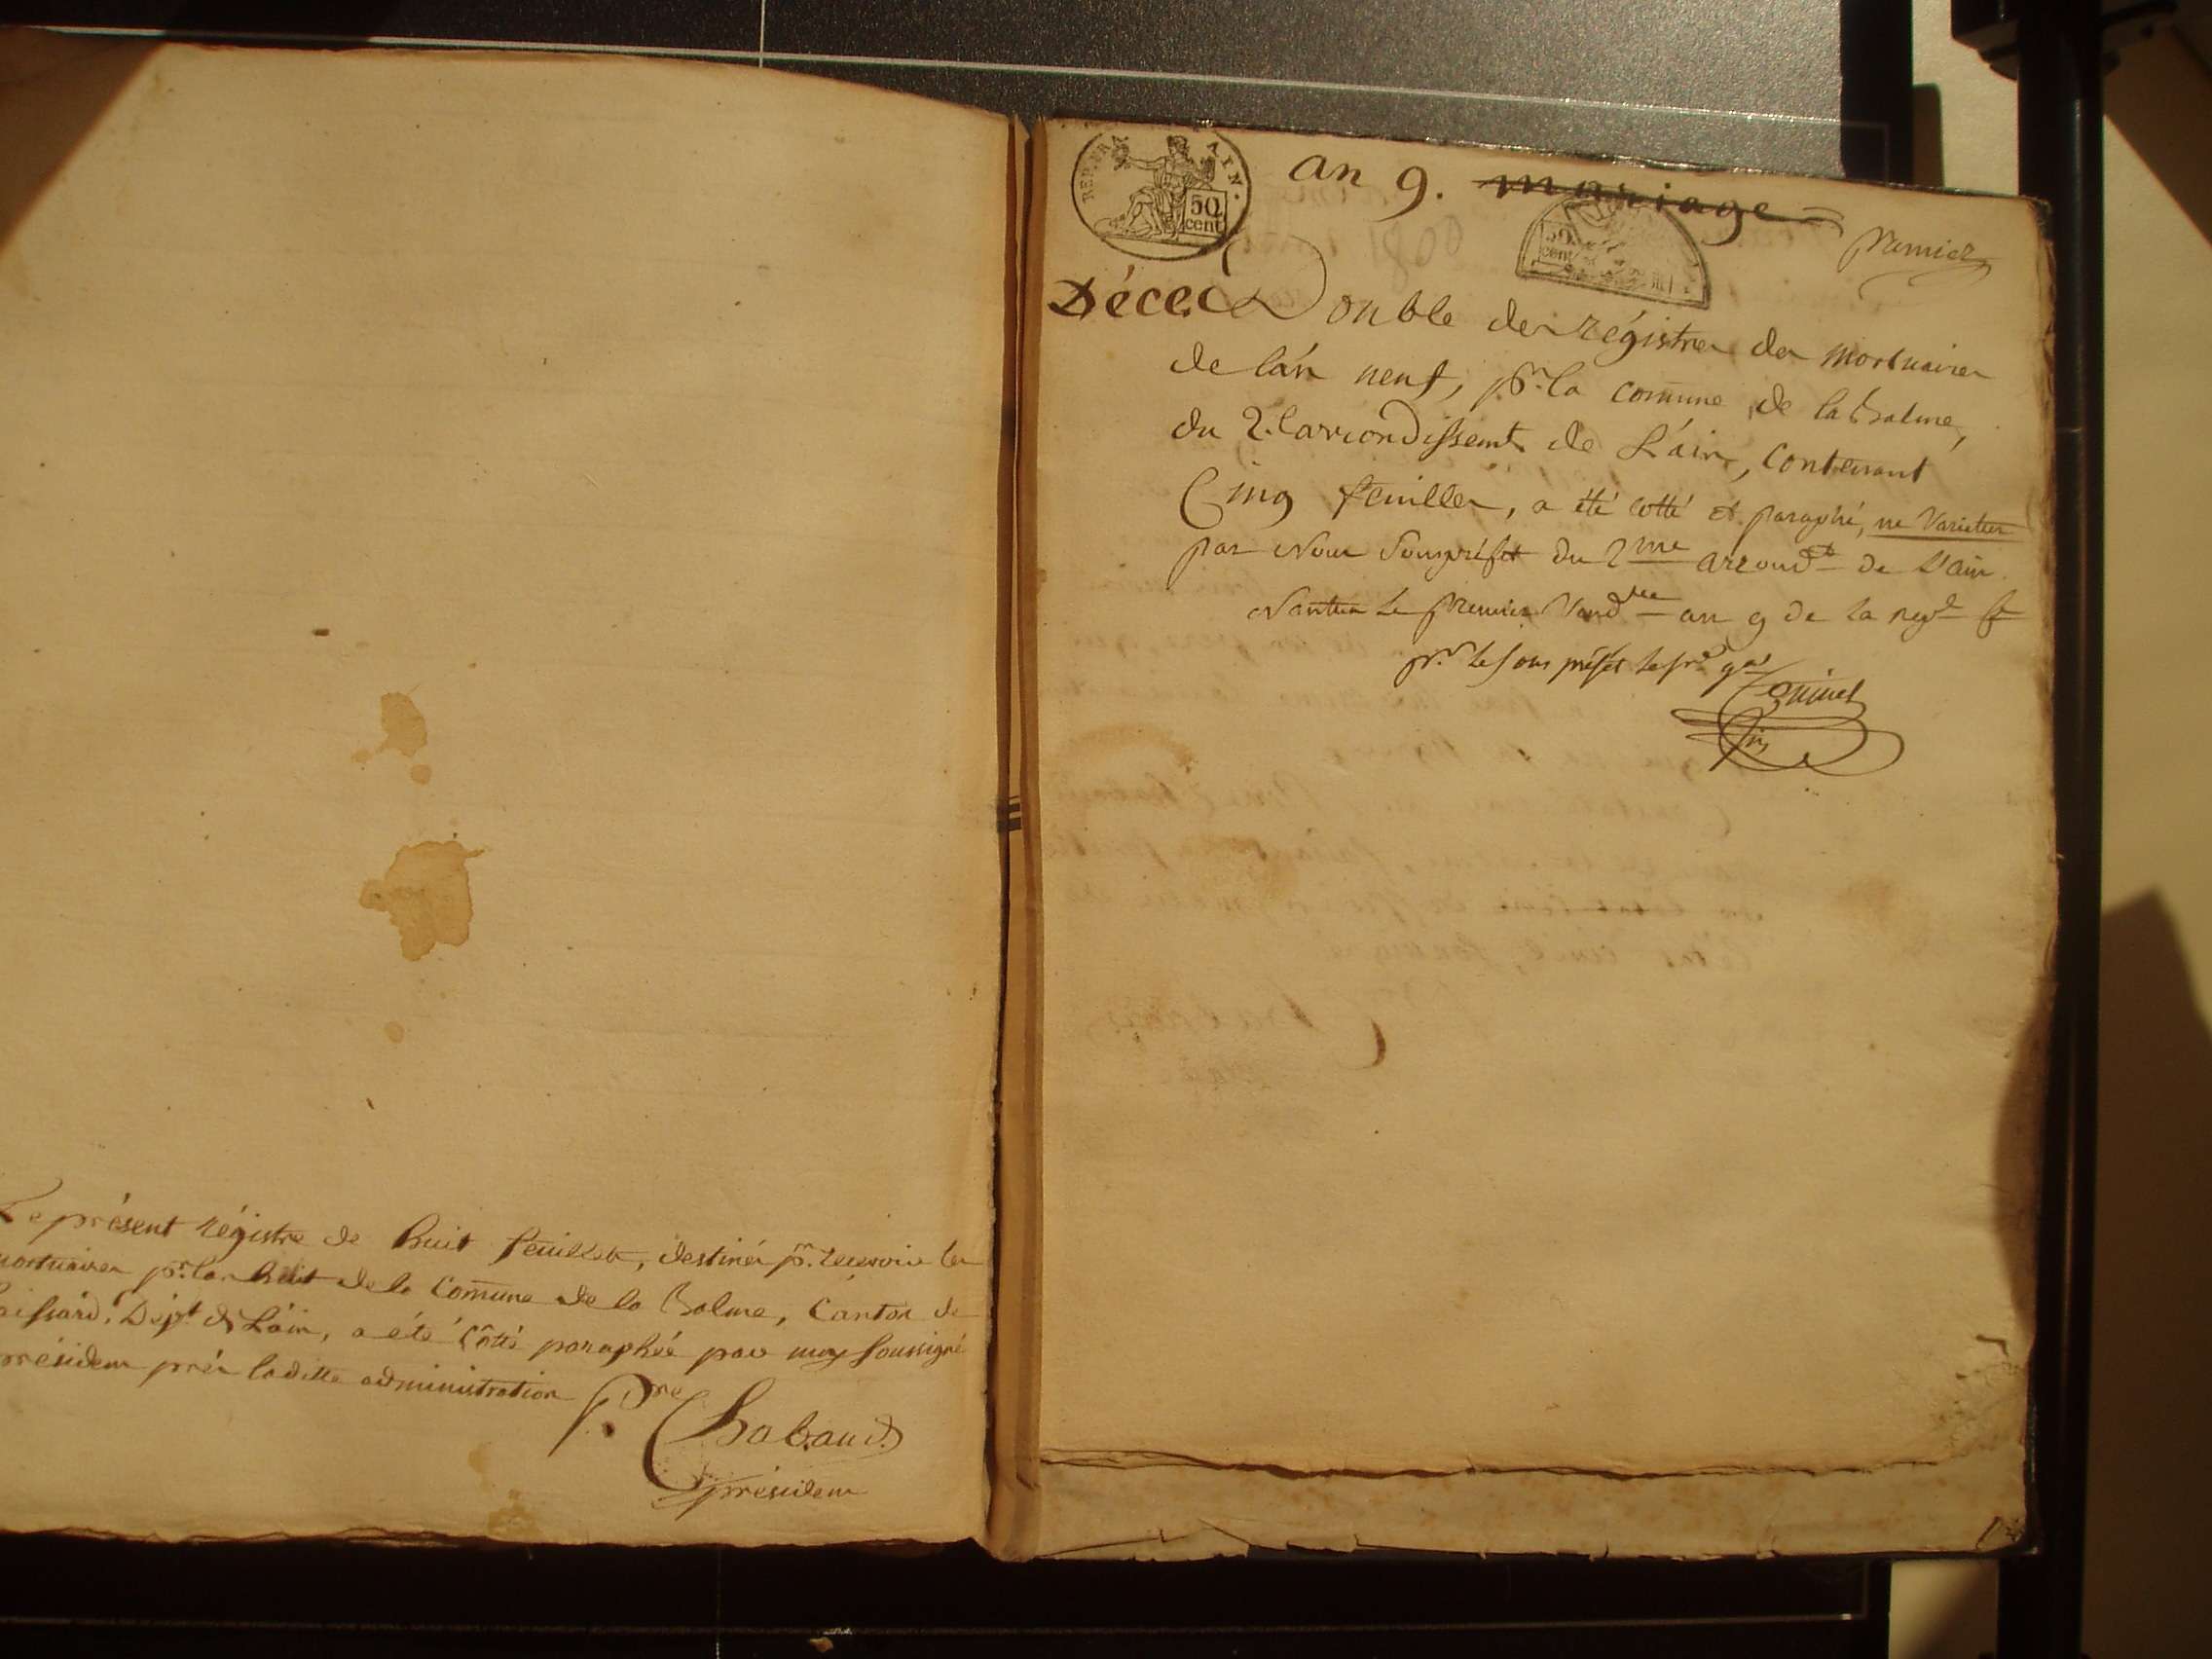 Le présent régistre de huit feuillets, destinés pr. recevoir les
mortuaires pr. l'an huit de la Com̄une de la Balme, Canton de
Leissard, Dépt de L'ain, a été côtté paraphée par moy soussigné
présidens près laditte administration
Pre Chabaud
présidens
REP. FRA AIN.
50
cent
an 9. mariage
50
cent
premier
Décès Double des régistres des mortuaires
de l'an neuf, pr. la com̄une de la Balme,
du 2. arrondissemt de L'ain, Contenant
Cinq feuilles, a été cotté et paraphé, ne varietur
par Nous Sousprefet du 2me arrondt de L'ain.
Nantua Le premier Vendre an 9 de la repe f
pr. Le sous préfet le sre gal